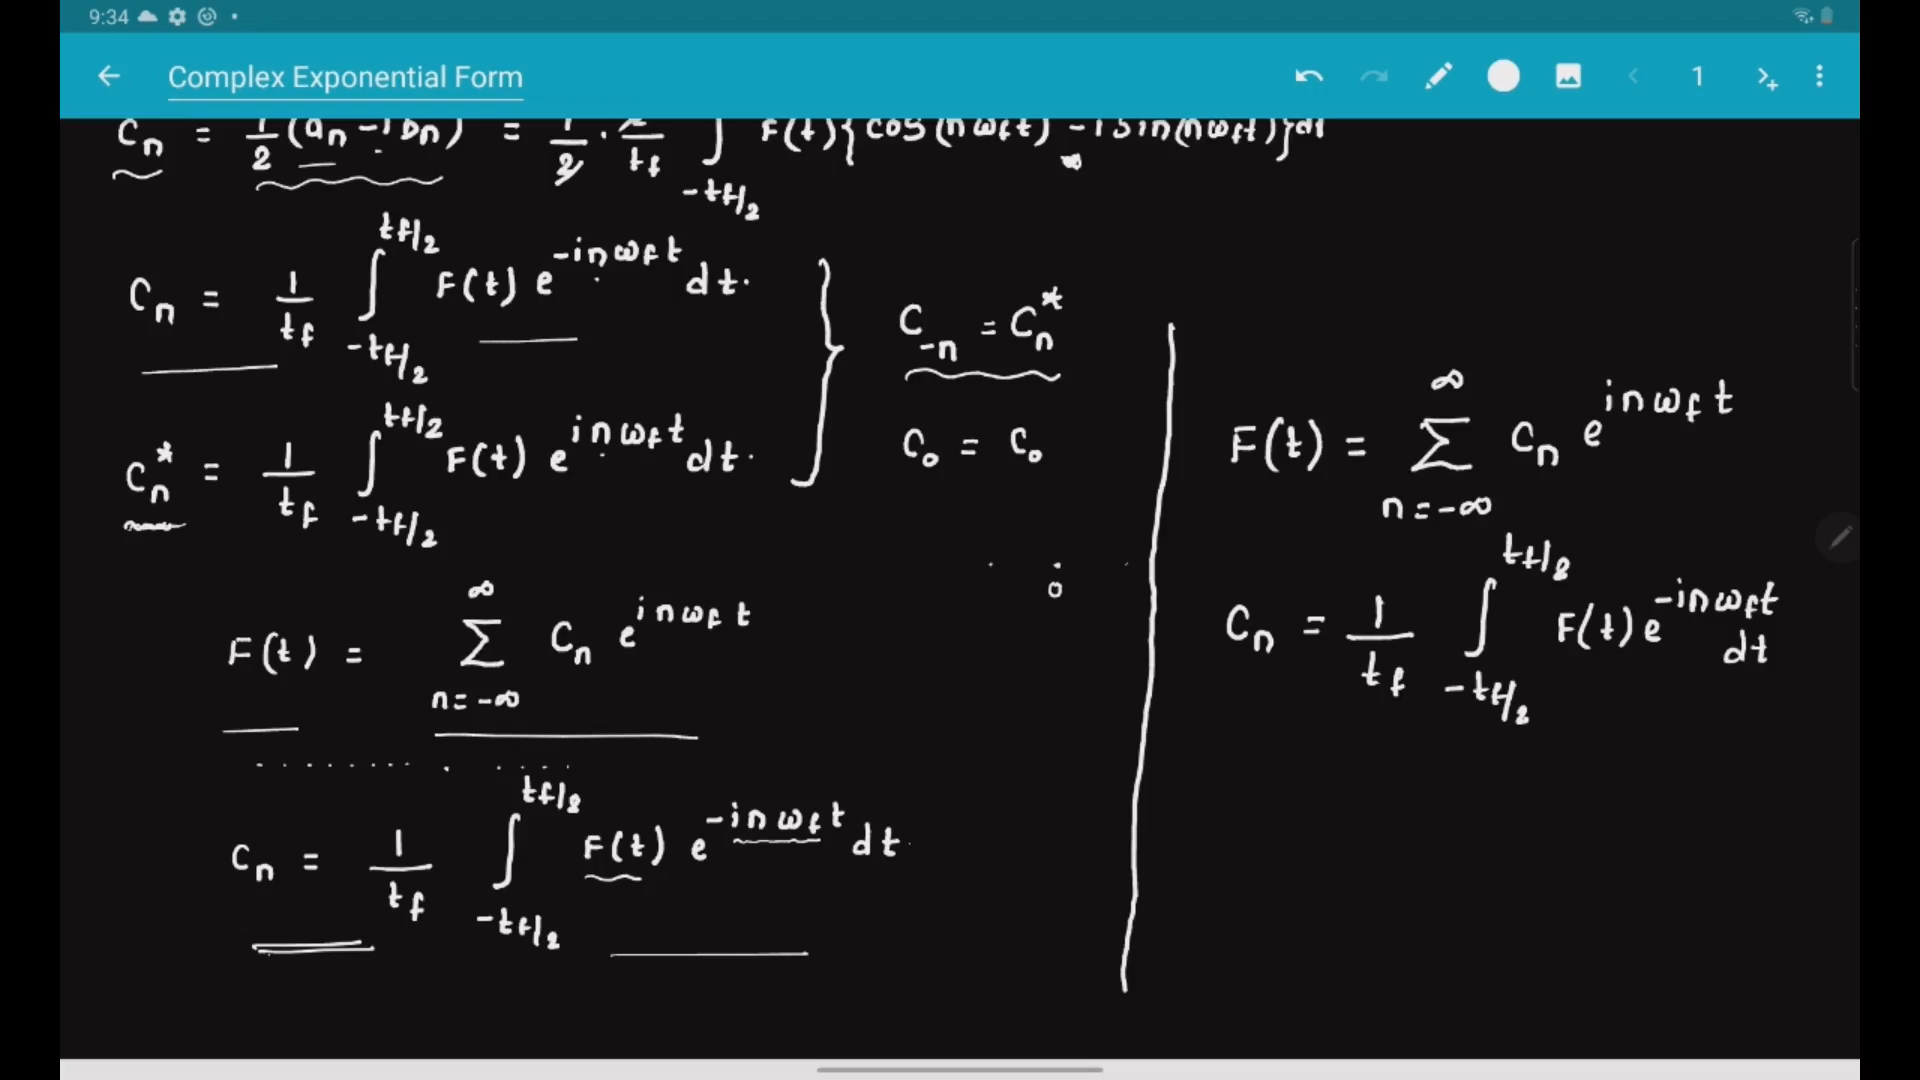 9:34
Complex Exponential Form
1
Cn = 1/2 (an - ibn) = 1/2 · 2/tf ∫_{-tf/2} F(t){cos(nωft) - i sin(nωft)}dt
Cn = 1/tf ∫_{-tf/2}^{tf/2} F(t) e^{-inωft} dt.
Cn* = 1/tf ∫_{-tf/2}^{tf/2} F(t) e^{inωft} dt.
C-n = Cn*
C0 = C0
F(t) = Σ_{n=-∞}^{∞} Cn e^{inωft}
Cn = 1/tf ∫_{-tf/2}^{tf/2} F(t) e^{-inωft} dt.
F(t) = Σ_{n=-∞}^{∞} Cn e^{inωft}
Cn = 1/tf ∫_{-tf/2}^{tf/2} F(t) e^{-inωft} dt